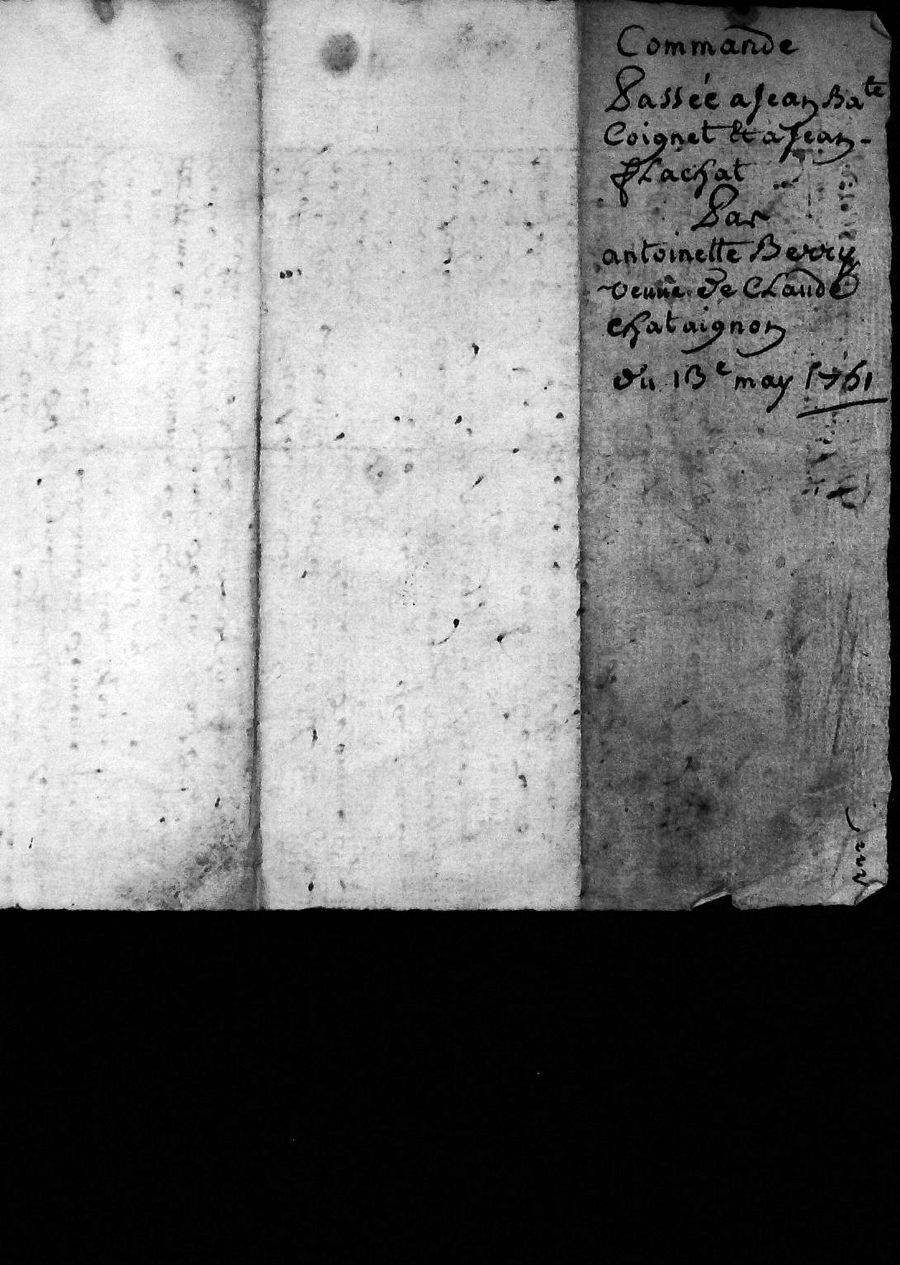 Commande
Passée a Jean Bate
Coignet & a Jean -
flachat
Par
antoinette Berry
veuue de Claude
chataignon
du 13e may 1761